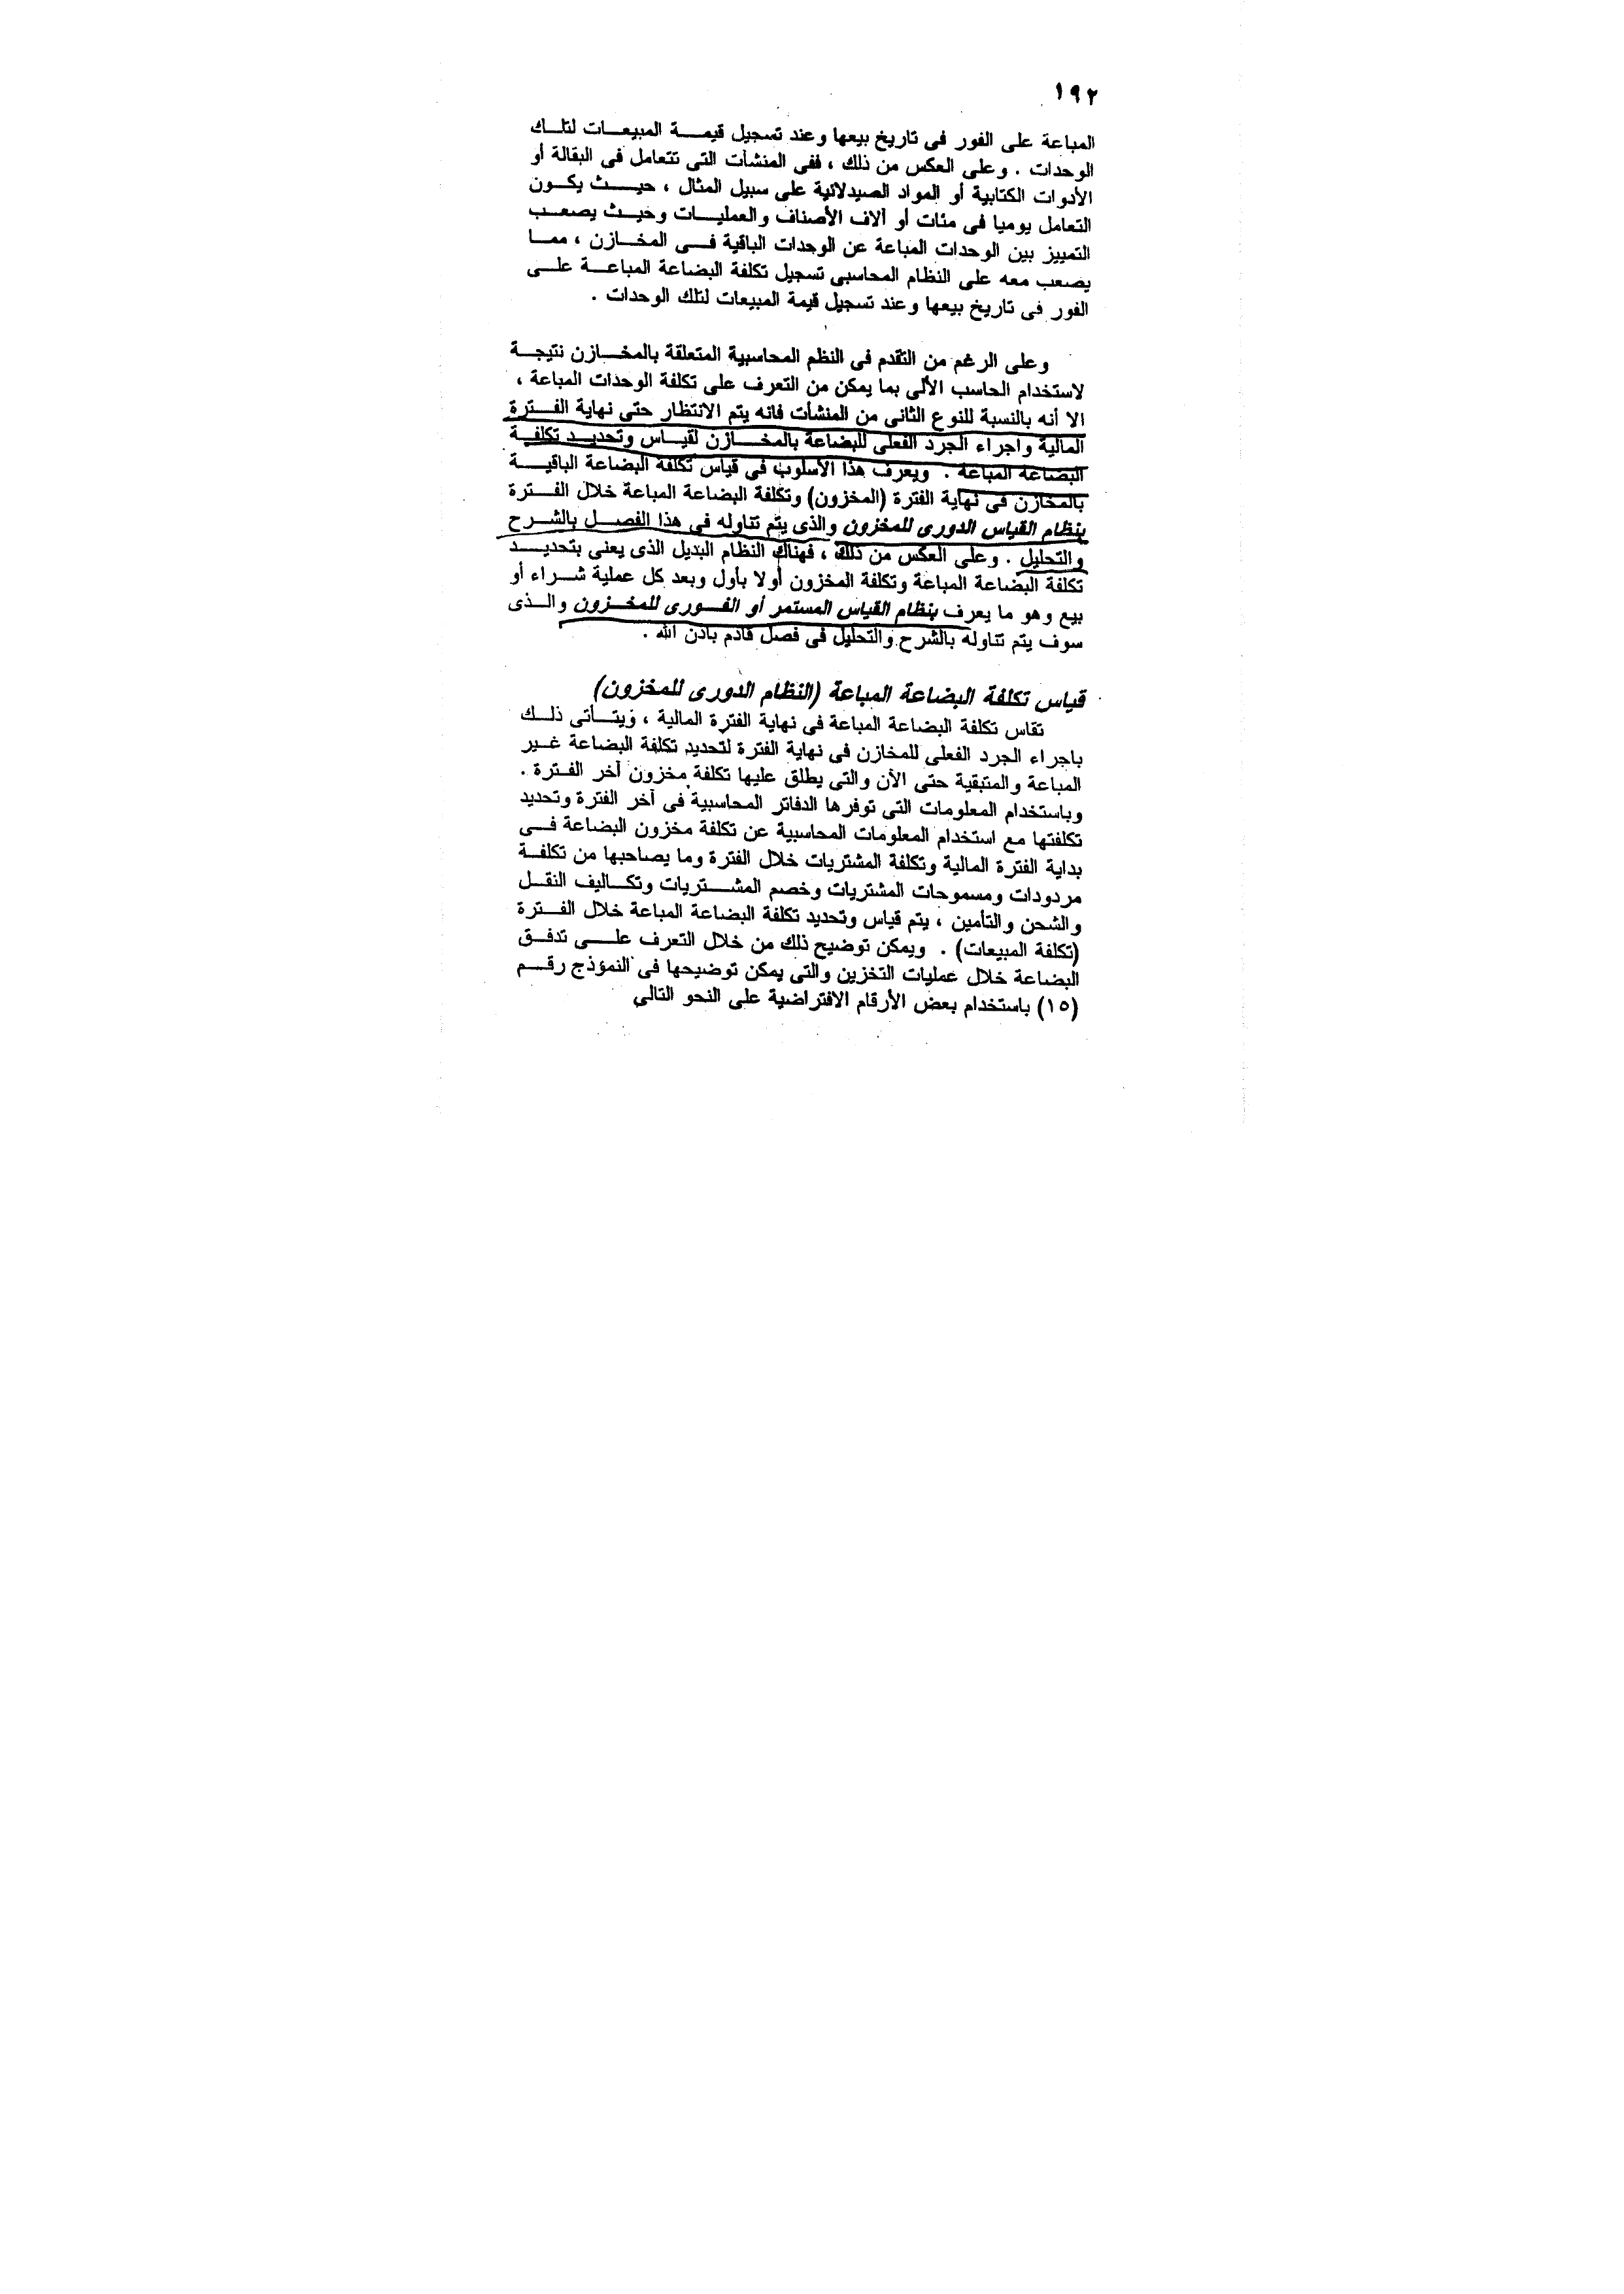 ١٩٢
المباعة على الفور فى تاريخ بيعها وعند تسجيل قيمة المبيعات لتلك
الوحدات . وعلى العكس من ذلك ، ففى المنشآت التى تتعامل فى البقالة أو
الأدوات الكتابية أو المواد الصيدلانية على سبيل المثال ، حيث يكون
التعامل يوميا فى مئات أو آلاف الأصناف والعمليات وحيث يصعب
التمييز بين الوحدات المباعة عن الوحدات الباقية فى المخازن ، مما
يصعب معه على النظام المحاسبى تسجيل تكلفة البضاعة المباعة على
الفور فى تاريخ بيعها وعند تسجيل قيمة المبيعات لتلك الوحدات .
وعلى الرغم من التقدم فى النظم المحاسبية المتعلقة بالمخازن نتيجة
لاستخدام الحاسب الآلى بما يمكن من التعرف على تكلفة الوحدات المباعة ،
الا أنه بالنسبة للنوع الثانى من المنشآت فانه يتم الانتظار حتى نهاية الفترة
المالية واجراء الجرد الفعلى للبضاعة بالمخازن لقياس وتحديد تكلفة
البضاعة المباعة . ويعرف هذا الأسلوب فى قياس تكلفة البضاعة الباقية
بالمخازن فى نهاية الفترة (المخزون) وتكلفة البضاعة المباعة خلال الفترة
بنظام القياس الدورى للمخزون والذى يتم تناوله فى هذا الفصل بالشرح
والتحليل . وعلى العكس من ذلك ، فهناك النظام البديل الذى يعنى بتحديد
تكلفة البضاعة المباعة وتكلفة المخزون أولا بأول وبعد كل عملية شراء أو
بيع وهو ما يعرف بنظام القياس المستمر أو الفورى للمخزون والذى
سوف يتم تناوله بالشرح والتحليل فى فصل قادم باذن الله .
قياس تكلفة البضاعة المباعة (النظام الدورى للمخزون)
تقاس تكلفة البضاعة المباعة فى نهاية الفترة المالية ، ويتأتى ذلك
باجراء الجرد الفعلى للمخازن فى نهاية الفترة لتحديد تكلفة البضاعة غير
المباعة والمتبقية حتى الآن والتى يطلق عليها تكلفة مخزون آخر الفترة .
وباستخدام المعلومات التى توفرها الدفاتر المحاسبية فى آخر الفترة وتحديد
تكلفتها مع استخدام المعلومات المحاسبية عن تكلفة مخزون البضاعة فى
بداية الفترة المالية وتكلفة المشتريات خلال الفترة وما يصاحبها من تكلفة
مردودات ومسموحات المشتريات وخصم المشتريات وتكاليف النقل
والشحن والتأمين ، يتم قياس وتحديد تكلفة البضاعة المباعة خلال الفترة
(تكلفة المبيعات) . ويمكن توضيح ذلك من خلال التعرف على تدفق
البضاعة خلال عمليات التخزين والتى يمكن توضيحها فى النموذج رقم
(١٥) باستخدام بعض الأرقام الافتراضية على النحو التالى